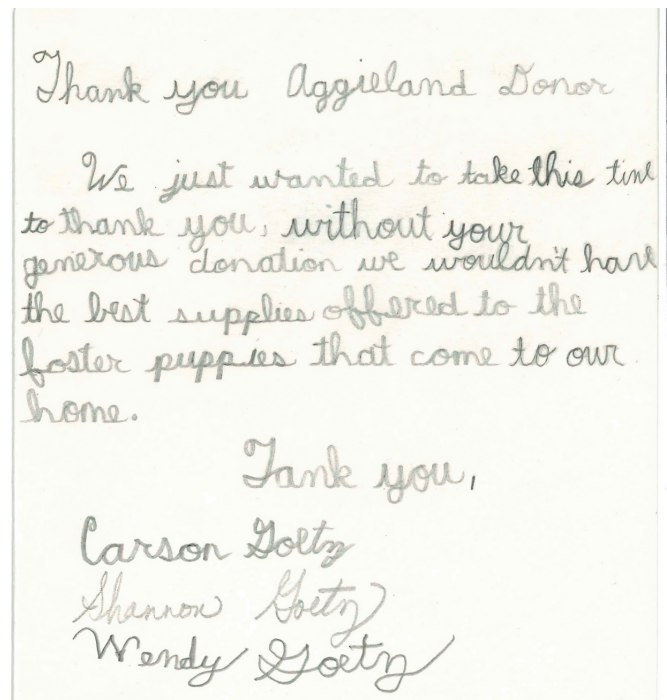 Thank you Aggieland Donor
We just wanted to take this time
to thank you, without your
generous donation we wouldn't have
the best supplies offered to the
foster puppies that come to our
home.
Tank you,
Carson Goetz
Shannon Goetz
Wendy Goetz